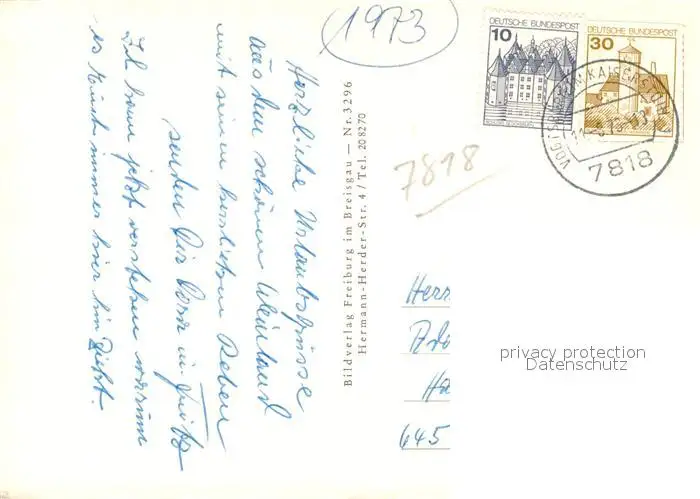 (1973)
DEUTSCHE BUNDESPOST
10
DEUTSCHE BUNDESPOST
30
KAISERSTUHL
7818
7818
Herzliche Urlaubsgrüsse
aus dem schönen Weinland
mit seinen herrlichen Reben
senden Dir
Ich kann jetzt verstehen warum
es Euch immer hier hin zieht.
Bildverlag Freiburg im Breisgau — Nr. 3296
Hermann-Herder-Str. 4 / Tel. 208270
Herr
Ado
Ha
645
privacy protection
Datenschutz